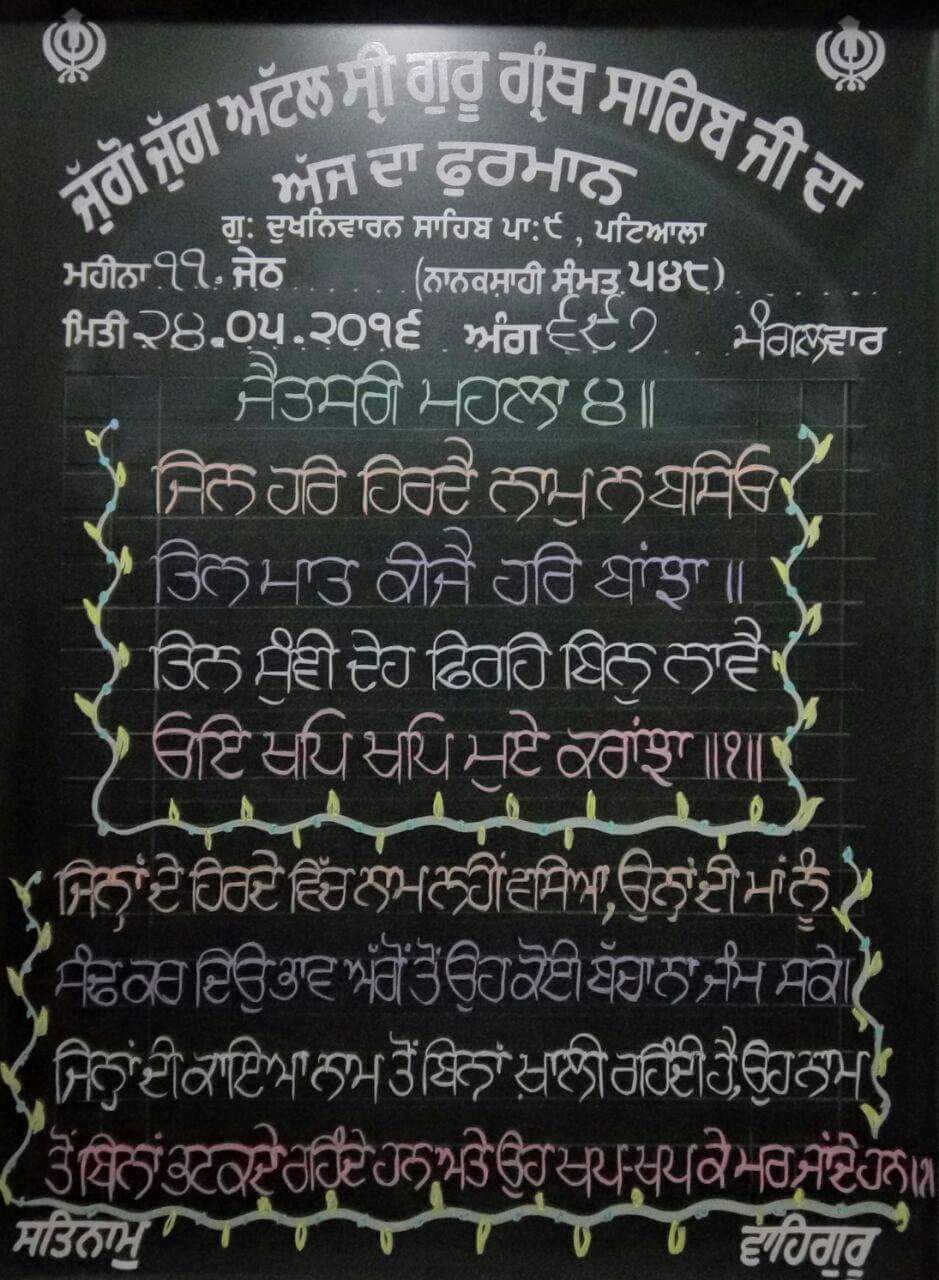 ਜੁੱਗੋ ਜੁੱਗ ਅਟੱਲ ਸ੍ਰੀ ਗੁਰੂ ਗ੍ਰੰਥ ਸਾਹਿਬ ਜੀ ਦਾ
ਅੱਜ ਦਾ ਫੁਰਮਾਨ
ਗੁ: ਦੁਖਨਿਵਾਰਨ ਸਾਹਿਬ ਪਾ:੯ , ਪਟਿਆਲਾ
ਮਹੀਨਾ ੧੧. ਜੇਠ (ਨਾਨਕਸ਼ਾਹੀ ਸੰਮਤ ੫੪੮)
ਮਿਤੀ ੨੪.੦੫.੨੦੧੬ ਅੰਗ ੬੯੭ ਮੰਗਲਵਾਰ
ਜੈਤਸਰੀ ਮਹਲਾ ੪॥
ਜਿਨ ਹਰਿ ਹਿਰਦੈ ਨਾਮੁ ਨ ਬਸਿਓ
ਤਿਨ ਮਾਤ ਕੀਜੈ ਹਰਿ ਬਾਂਝਾ ॥
ਤਿਨ ਸੁੰਞੀ ਦੇਹ ਫਿਰਹਿ ਬਿਨੁ ਨਾਵੈ
ਓਇ ਖਪਿ ਖਪਿ ਮੁਏ ਕਰਾਂਝਾ ॥੧॥
ਜਿਨ੍ਹਾਂ ਦੇ ਹਿਰਦੇ ਵਿੱਚ ਨਾਮ ਨਹੀਂ ਵਸਿਆ, ਉਨ੍ਹਾਂ ਦੀ ਮਾਂ ਨੂੰ
ਸੰਢ ਕਰ ਦਿਉ ਭਾਵ ਅੱਗੋਂ ਤੋਂ ਉਹ ਕੋਈ ਬੱਚਾ ਨਾ ਜੰਮ ਸਕੇ।
ਜਿਨ੍ਹਾਂ ਦੀ ਕਾਇਆ ਨਾਮ ਤੋਂ ਬਿਨਾਂ ਖ਼ਾਲੀ ਰਹਿੰਦੀ ਹੈ, ਉਹ ਨਾਮ
ਤੋਂ ਬਿਨਾਂ ਭਟਕਦੇ ਰਹਿੰਦੇ ਹਨ ਅਤੇ ਉਹ ਖਪ-ਖਪ ਕੇ ਮਰ ਜਾਂਦੇ ਹਨ॥੧
ਸਤਿਨਾਮੁ ਵਾਹਿਗੁਰੂ